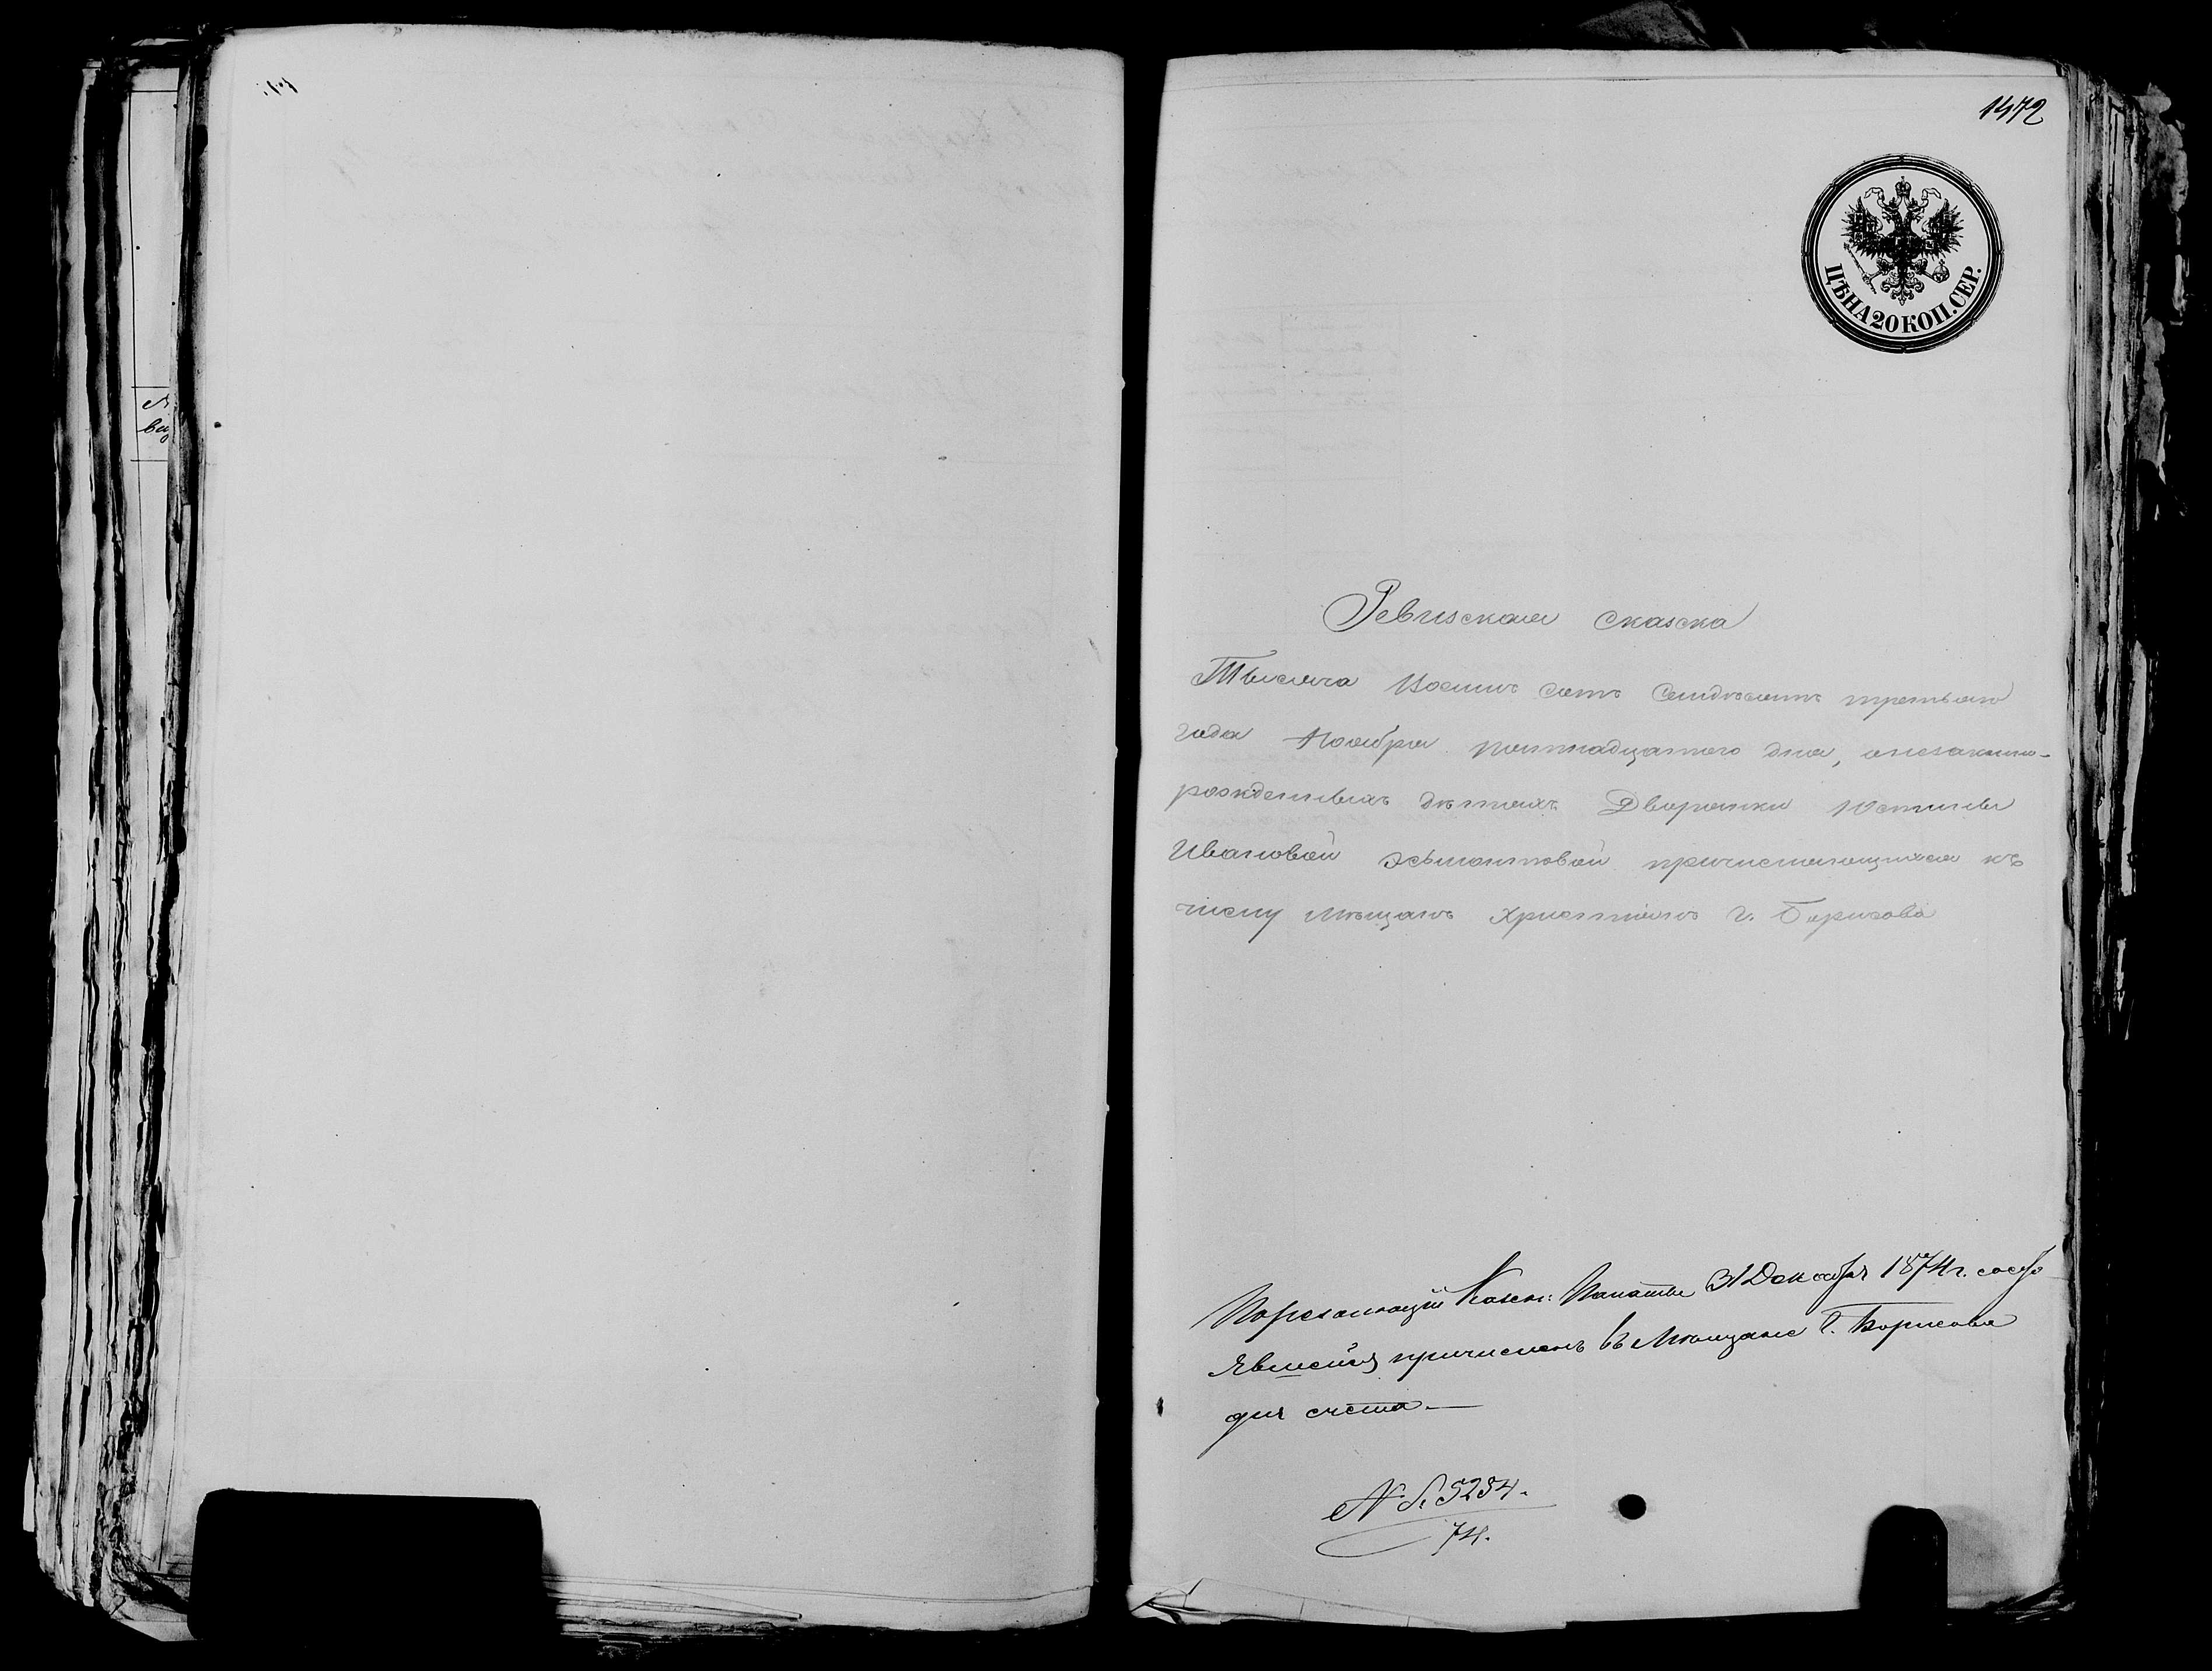 1472
ЦѢНА 20 КОП. СЕР.
Ревизская сказка
Тысяча Восемь сотъ Семидѣсять третьяго
года Ноября пятнадцатого дня, онезаконно-
рожденныхъ дѣтяхъ Дворянки Юстины
Ивановой Эсьмонтовой причисляющихся къ
числу мѣщанъ христіянъ г. Борисова
По резолюціи Казен: Палаты 31 Декабря 1874 г. состо
явшейся причисленъ въ Мѣщане г. Борисова
для счета.—
№ 5254.
74.